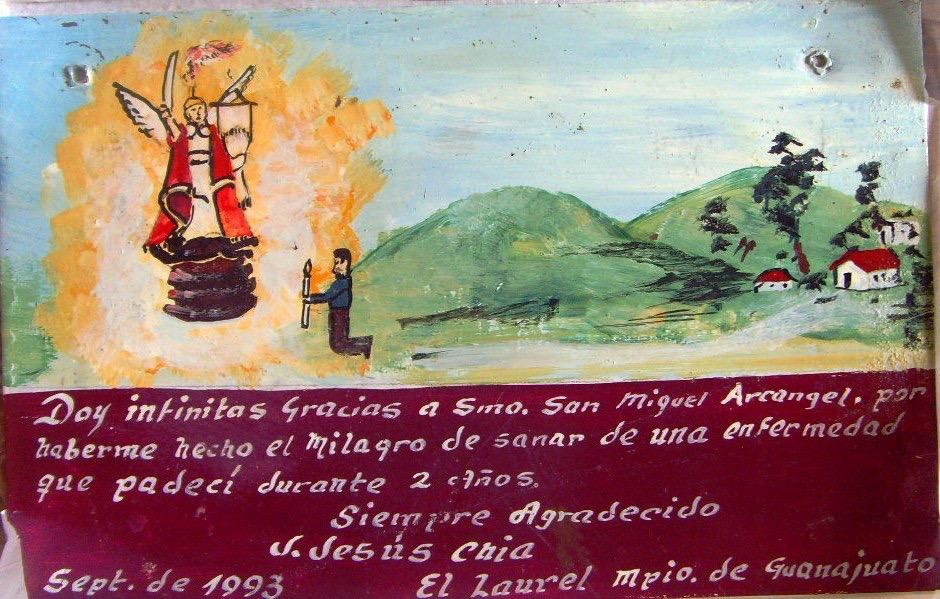 Doy infinitas Gracias a Smo. San Miguel Arcangel, por
haberme hecho el Milagro de sanar de una enfermedad
que padecí durante 2 Años.
Siempre Agradecido
J. Jesús Chia
Sept. de 1993 El Laurel Mpio. de Guanajuato